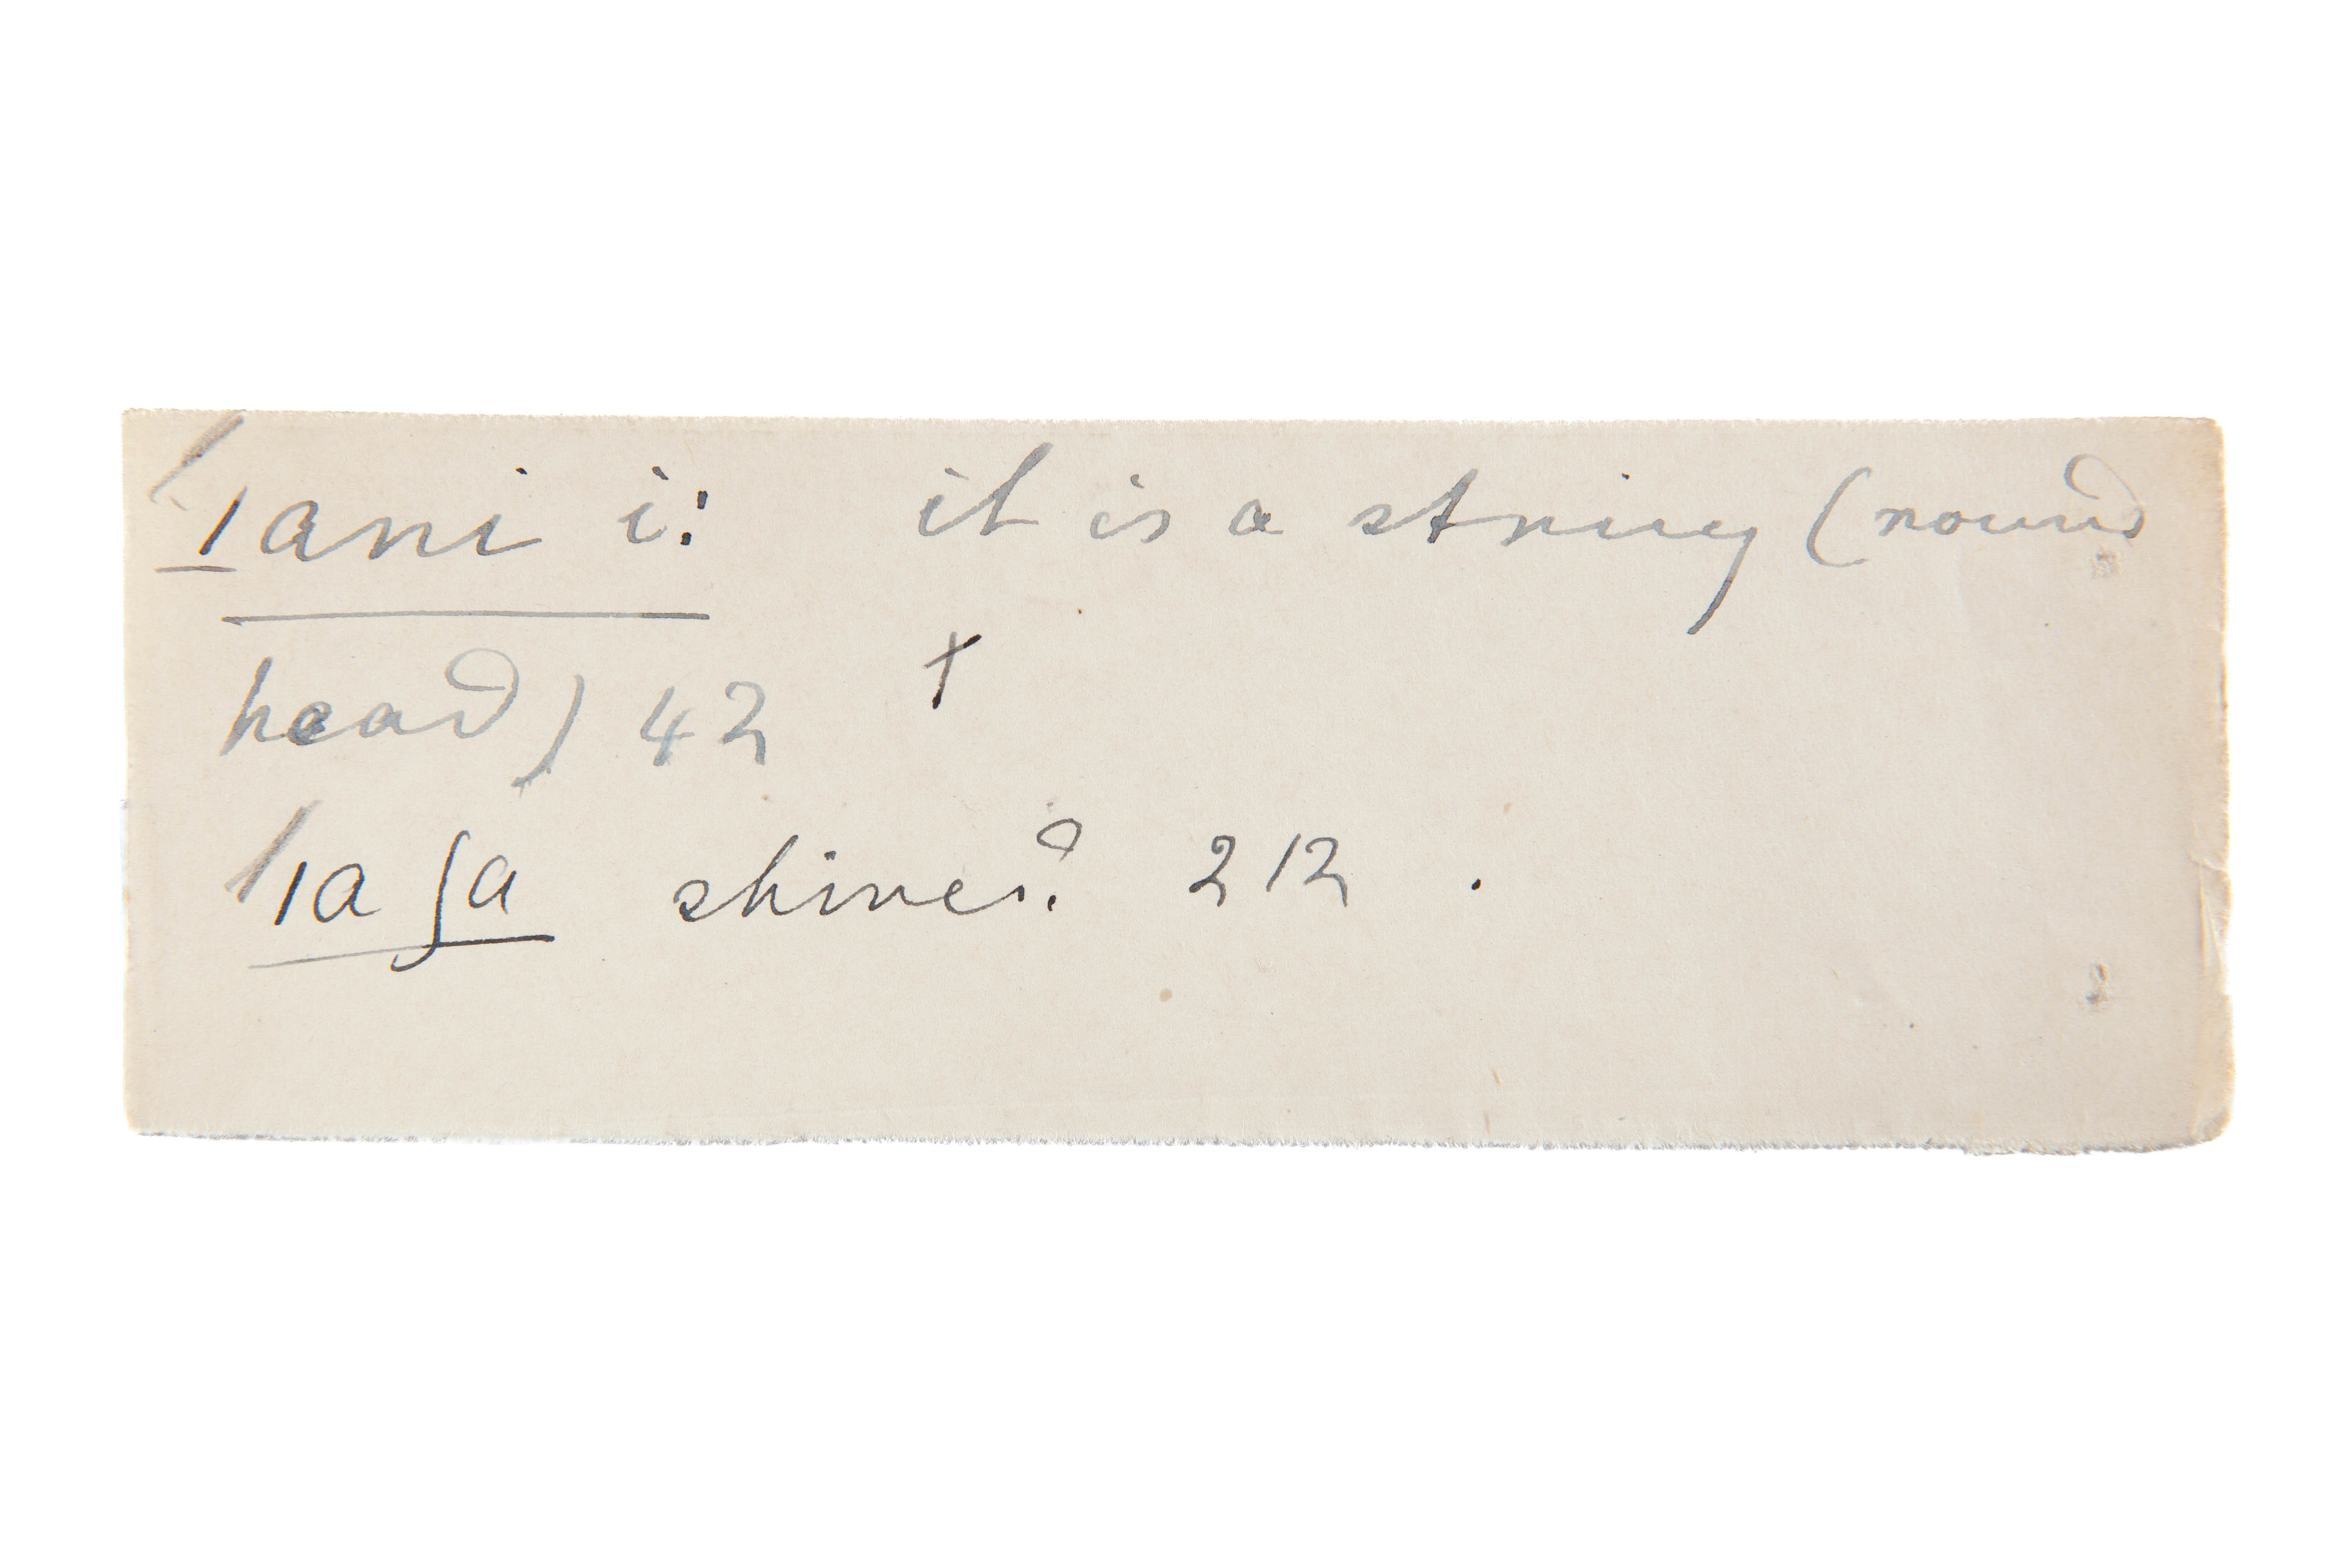 |ani i: it is a string (round
head) 42 +
|aʃa shines? 212 .